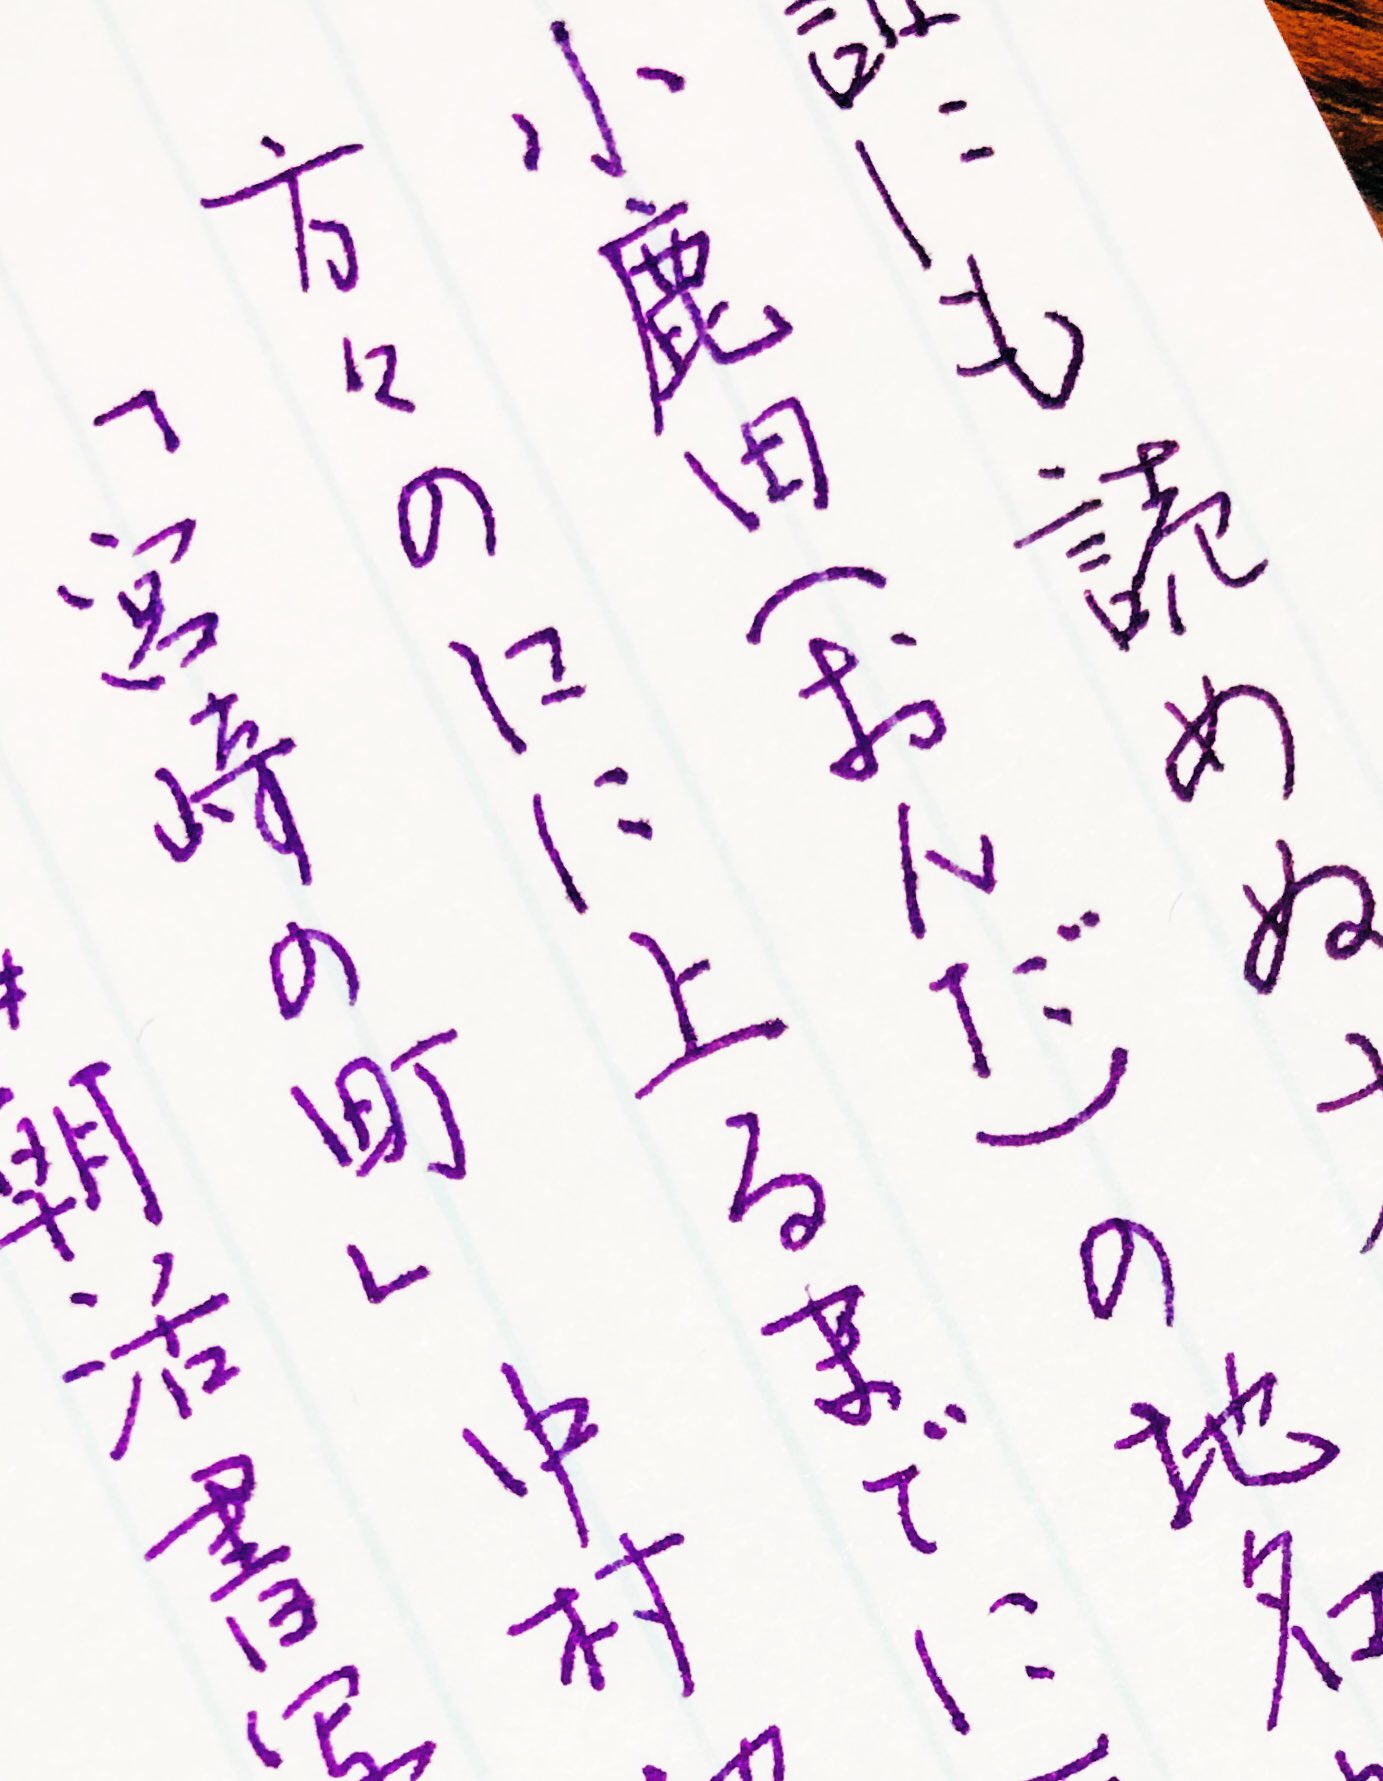 誰にも読めぬ
小鹿田(おんだ)の地
方々の口に上るまでに
「宮崎の町」中村
朝
書